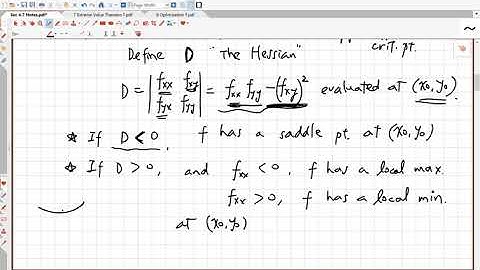 Sec 4.7 Notes.pdf*
7 Extreme Value Theorem 7.pdf*
8 Optimization 7.pdf*
Define D "The Hessian"
crit. pt.
D = | fxx fxy fyx fyy | = fxx fyy - (fxy)² evaluated at (x0, y0)
* If D < 0, f has a saddle pt. at (x0, y0)
* If D > 0, and fxx < 0, f has a local max.
fxx > 0, f has a local min.
at (x0, y0)